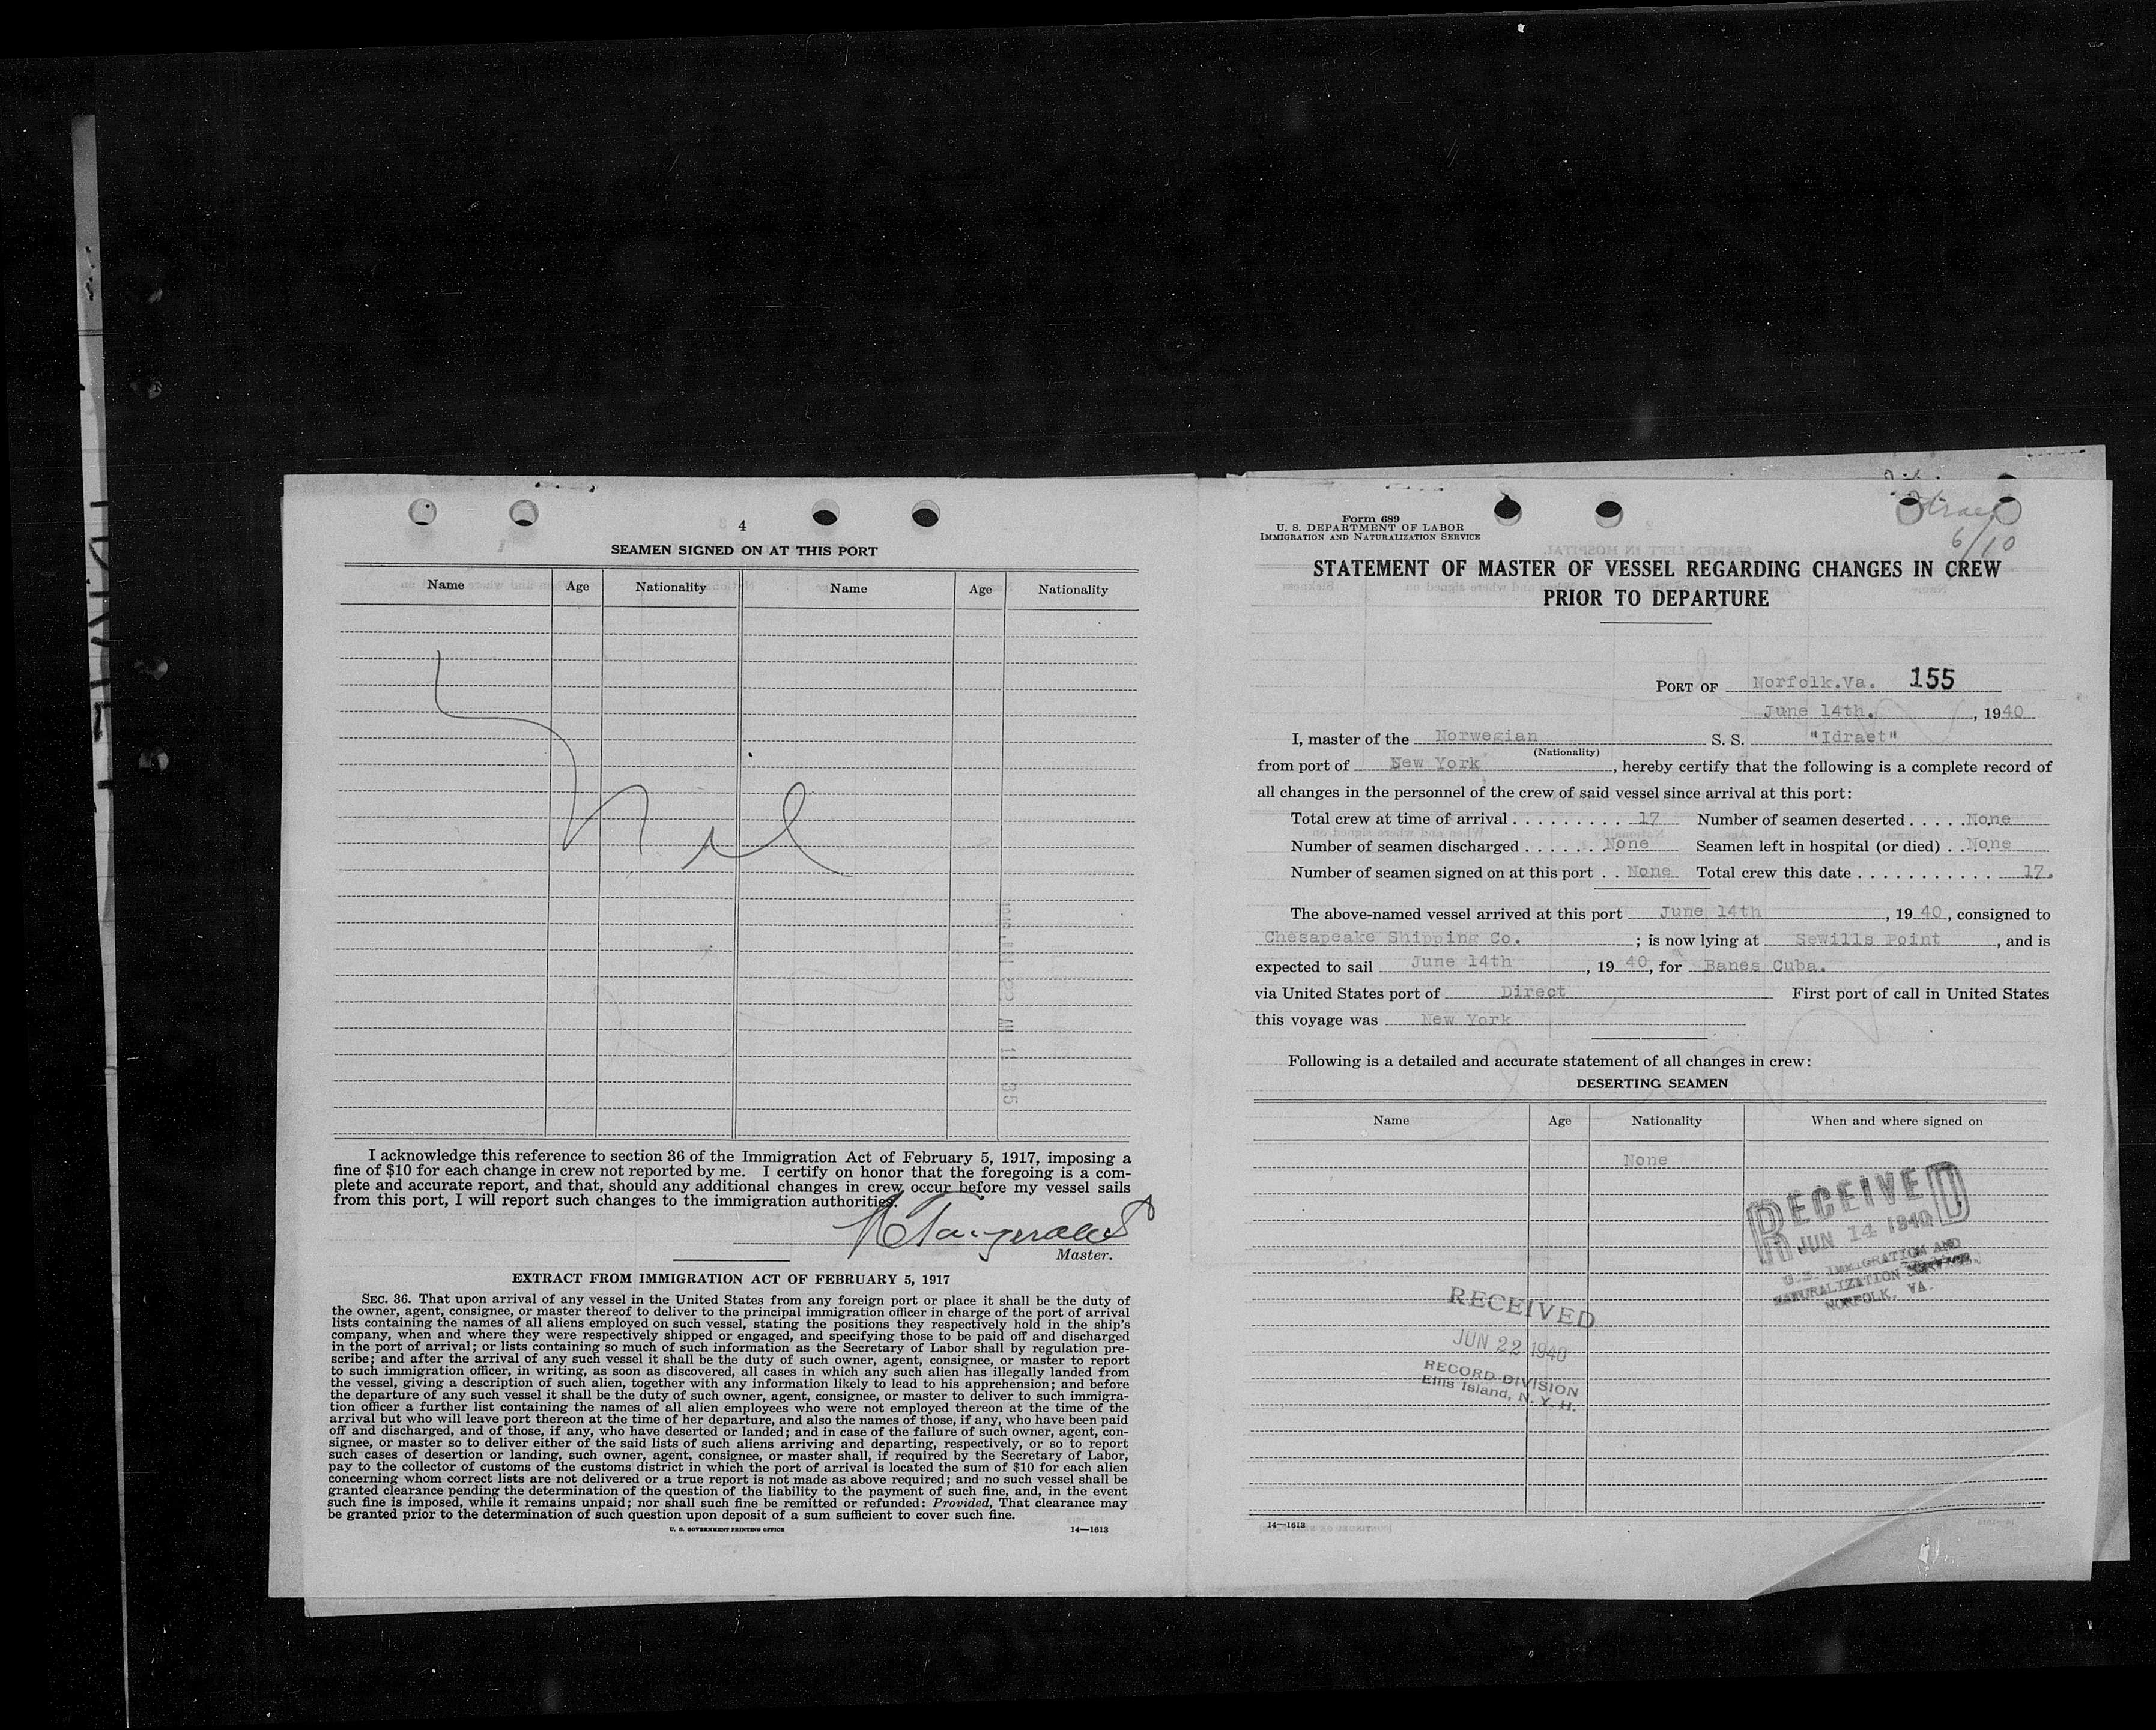 4
SEAMEN SIGNED ON AT THIS PORT
Name Age Nationality Name Age Nationality
Nil
I acknowledge this reference to section 36 of the Immigration Act of February 5, 1917, imposing a
fine of $10 for each change in crew not reported by me. I certify on honor that the foregoing is a com-
plete and accurate report, and that, should any additional changes in crew occur before my vessel sails
from this port, I will report such changes to the immigration authorities.
Master.
EXTRACT FROM IMMIGRATION ACT OF FEBRUARY 5, 1917
SEC. 36. That upon arrival of any vessel in the United States from any foreign port or place it shall be the duty of
the owner, agent, consignee, or master thereof to deliver to the principal immigration officer in charge of the port of arrival
lists containing the names of all aliens employed on such vessel, stating the positions they respectively hold in the ship's
company, when and where they were respectively shipped or engaged, and specifying those to be paid off and discharged
in the port of arrival; or lists containing so much of such information as the Secretary of Labor shall by regulation pre-
scribe; and after the arrival of any such vessel it shall be the duty of such owner, agent, consignee, or master to report
to such immigration officer, in writing, as soon as discovered, all cases in which any such alien has illegally landed from
the vessel, giving a description of such alien, together with any information likely to lead to his apprehension; and before
the departure of any such vessel it shall be the duty of such owner, agent, consignee, or master to deliver to such immigra-
tion officer a further list containing the names of all alien employees who were not employed thereon at the time of the
arrival but who will leave port thereon at the time of her departure, and also the names of those, if any, who have been paid
off and discharged, and of those, if any, who have deserted or landed; and in case of the failure of such owner, agent, con-
signee, or master so to deliver either of the said lists of such aliens arriving and departing, respectively, or so to report
such cases of desertion or landing, such owner, agent, consignee, or master shall, if required by the Secretary of Labor,
pay to the collector of customs of the customs district in which the port of arrival is located the sum of $10 for each alien
concerning whom correct lists are not delivered or a true report is not made as above required; and no such vessel shall be
granted clearance pending the determination of the question of the liability to the payment of such fine, and, in the event
such fine is imposed, while it remains unpaid; nor shall such fine be remitted or refunded: Provided, That clearance may
be granted prior to the determination of such question upon deposit of a sum sufficient to cover such fine.
U. S. GOVERNMENT PRINTING OFFICE 14—1613
Form 689
U. S. DEPARTMENT OF LABOR
IMMIGRATION AND NATURALIZATION SERVICE
6/10
STATEMENT OF MASTER OF VESSEL REGARDING CHANGES IN CREW
PRIOR TO DEPARTURE
PORT OF Norfolk.Va. 155
June 14th. , 1940
I, master of the Norwegian S. S. "Idraet"
(Nationality)
from port of New York , hereby certify that the following is a complete record of
all changes in the personnel of the crew of said vessel since arrival at this port:
Total crew at time of arrival . . . . . . . . . 17 Number of seamen deserted . . . . . None
Number of seamen discharged . . . . . . . None Seamen left in hospital (or died) . . None
Number of seamen signed on at this port . . None Total crew this date . . . . . . . . . . . 17.
The above-named vessel arrived at this port June 14th , 19 40 , consigned to
Chesapeake Shipping Co. ; is now lying at Sewills Point , and is
expected to sail June 14th , 19 40 , for Banes Cuba.
via United States port of Direct First port of call in United States
this voyage was New York
Following is a detailed and accurate statement of all changes in crew:
DESERTING SEAMEN
Name Age Nationality When and where signed on
None
RECEIVED
JUN 14 1940
U.S. IMMIGRATION AND
NATURALIZATION SERVICE.
NORFOLK, VA.
RECEIVED
JUN 22 1940
RECORD DIVISION
Ellis Island, N. Y. H.
14—1613